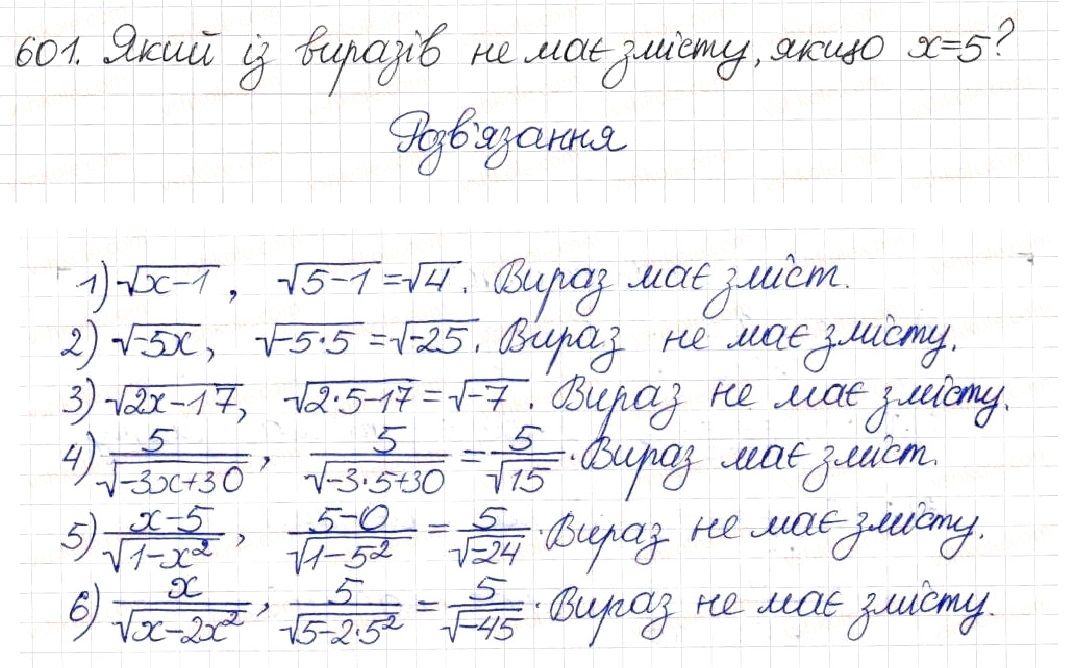 601. Який із виразів не має змісту, якщо x=5?
Розв'язання
1) √(x-1), √(5-1) = √4. Вираз має зміст.
2) √(-5x), √(-5·5) = √(-25). Вираз не має змісту.
3) √(2x-17), √(2·5-17) = √(-7). Вираз не має змісту.
4) 5/√(-3x+30), 5/√(-3·5+30) = 5/√15. Вираз має зміст.
5) (x-5)/√(1-x²), (5-0)/√(1-5²) = 5/√(-24). Вираз не має змісту.
6) x/√(x-2x²), 5/√(5-2·5²) = 5/√(-45). Вираз не має змісту.